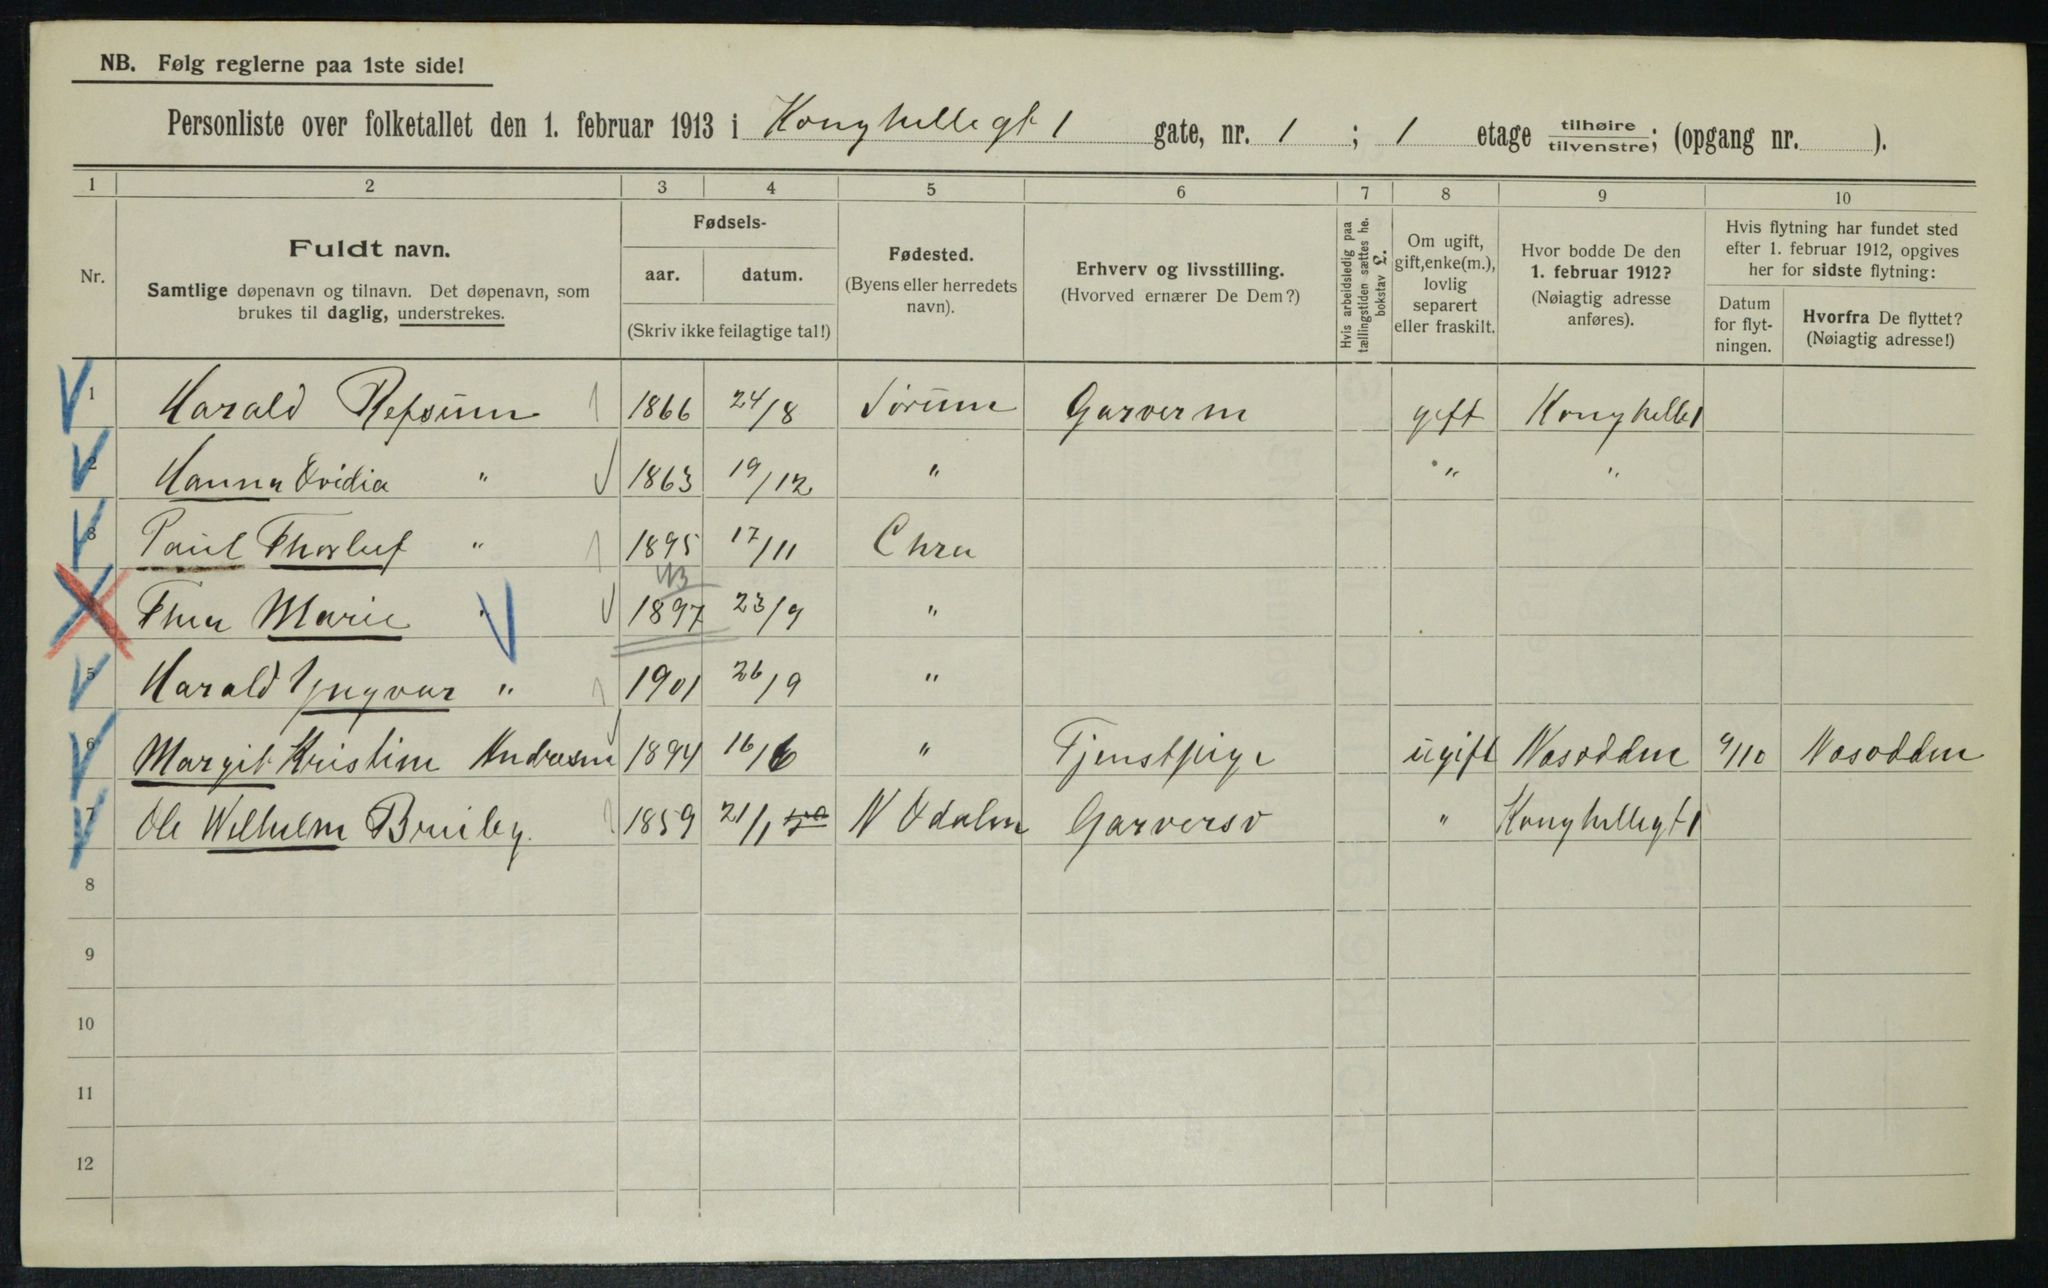 NB. Følg reglerne paa 1ste side!
Personliste over folketallet den 1. februar 1913 i Konghellegt 1 gate, nr. 1 ; 1 etage tilhøire/tilvenstre; (opgang nr. ).
1 2 3 4 5 6 7 8 9 10
Nr.
Fuldt navn.
Samtlige døpenavn og tilnavn. Det døpenavn, som
brukes til daglig, understrekes.
Fødsels-
aar. datum.
(Skriv ikke feilagtige tal!)
Fødested.
(Byens eller herredets
navn).
Erhverv og livsstilling.
(Hvorved ernærer De Dem?)
Hvis arbeidsledig paa
tællingstiden sættes he.
bokstav L.
Om ugift,
gift, enke(m.),
lovlig
separert
eller fraskilt.
Hvor bodde De den
1. februar 1912?
(Nøiagtig adresse
anføres).
Hvis flytning har fundet sted
efter 1. februar 1912, opgives
her for sidste flytning:
Datum
for flyt-
ningen.
Hvorfra De flyttet?
(Nøiagtig adresse!)
1 Harald Refsum 1866 24/8 Sørum Garverm gift Konghelle 1
2 Hanna Ovidia " 1863 19/12 " " "
3 Paul Thorluf " 1895 17/11 Chra
NB
Thea Marie " 1897 23/9 "
5 Harald Yngvar " 1901 26/9 "
6 Margit Kristine Andresen 1894 16/6 " Tjenstpige ugift Nesodden 9/10 Nesodden
7 Ole Wilhelm Bruiby. 1859 21/1 N Odalen Garversv " Konghellegt 1
8
9
10
11
12